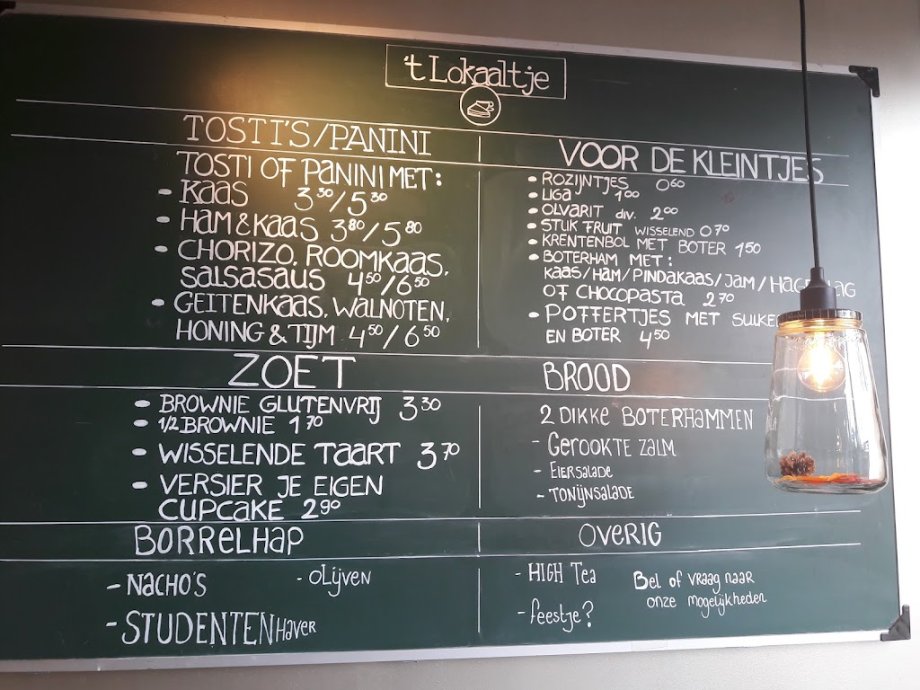 't Lokaaltje
TOSTI'S/PANINI
TOSTI OF PANINI MET:
- KAAS 3 30/5 30
- HAM & KAAS 3 80/5 80
- CHORIZO, ROOMKAAS,
SALSASAUS 4 50/6 50
- GEITENKAAS, WALNOTEN,
HONING & TIJM 4 50/6 50
VOOR DE KLEINTJES
- ROZIJNTJES 0 60
- LIGA 1 00
- OLVARIT div. 2 00
- STUK FRUIT WISSELEND 0 70
- KRENTENBOL MET BOTER 1 50
- BOTERHAM MET:
KAAS/HAM/PINDAKAAS/JAM/
OF CHOCOPASTA 2 70
- POFFERTJES MET
EN BOTER 4 50
ZOET
- BROWNIE GLUTENVRIJ 3 30
- 1/2 BROWNIE 1 70
- WISSELENDE TAART 3 70
- VERSIER JE EIGEN
CUPCAKE 2 90
BROOD
2 DIKKE BOTERHAMMEN
- GEROOKTE ZALM
- EIERSALADE
- TONIJNSALADE
BORRELHAP
- NACHO'S - OLIJVEN
- STUDENTENHAVER
OVERIG
- HIGH TEA
- feestje?
Bel of vraag naar
onze mogelijkheden